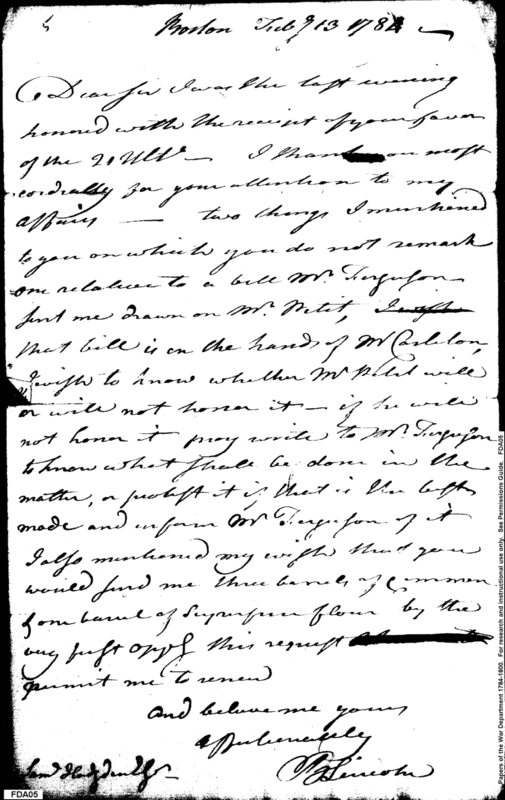 Boston Feby 13 1784
Dear Sir I was the last evening
honored with the receipt of your favor
of the 20 Ulto — I thank you most
cordially for your attention to my
affairs — two things I mentioned
to you on which you do not remark
one relative to a bill Mr. Ferguson
sent me drawn on Mr. Petit, I wish
that bill is in the hands of Mr Carleton,
I wish to know whether Mr Petit will
or will not honor it — if he will
not honor it pray write to Mr. Ferguson
to know what shall be done in the
matter, or protest it if that is the best
made and inform Mr Ferguson of it
I also mentioned my wish that you
would send me three barrels of common
& one barrel of Superfine flour by the
very first oppy this request
permit me to renew
and believe me yours
affectionately
B Lincoln
Saml Hodgdon Esqr
FDA05
Papers of the War Department 1784-1800. For research and instructional use only. See Permissions Guide. FDA05